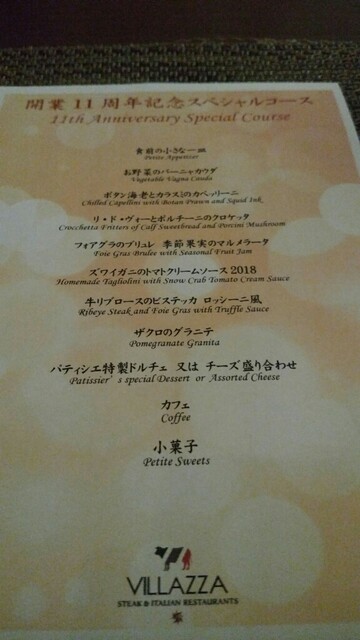 開業11周年記念スペシャルコース
11th Anniversary Special Course
食前の小さな一皿
Petite Appetizer
お野菜のバーニャカウダ
Vegetable Vagna Cauda
ボタン海老とカラスミのカペッリーニ
Chilled Capellini with Botan Prawn and Squid Ink
リ・ド・ヴォーとポルチーニのクロケッタ
Crocchetta Fritters of Calf Sweetbread and Porcini Mushroom
フォアグラのブリュレ 季節果実のマルメラータ
Foie Gras Brulee with Seasonal Fruit Jam
ズワイガニのトマトクリームソース 2018
Homemade Tagliolini with Snow Crab Tomato Cream Sauce
牛リブロースのビステッカ ロッシーニ風
Ribeye Steak and Foie Gras with Truffle Sauce
ザクロのグラニテ
Pomegranate Granita
パティシエ特製ドルチェ 又は チーズ盛り合わせ
Patissier's special Dessert or Assorted Cheese
カフェ
Coffee
小菓子
Petite Sweets
VILLAZZA
STEAK & ITALIAN RESTAURANTS